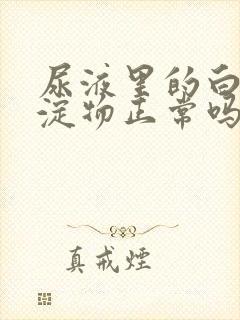 尿液里的白
淀物正常吗
真戒煙